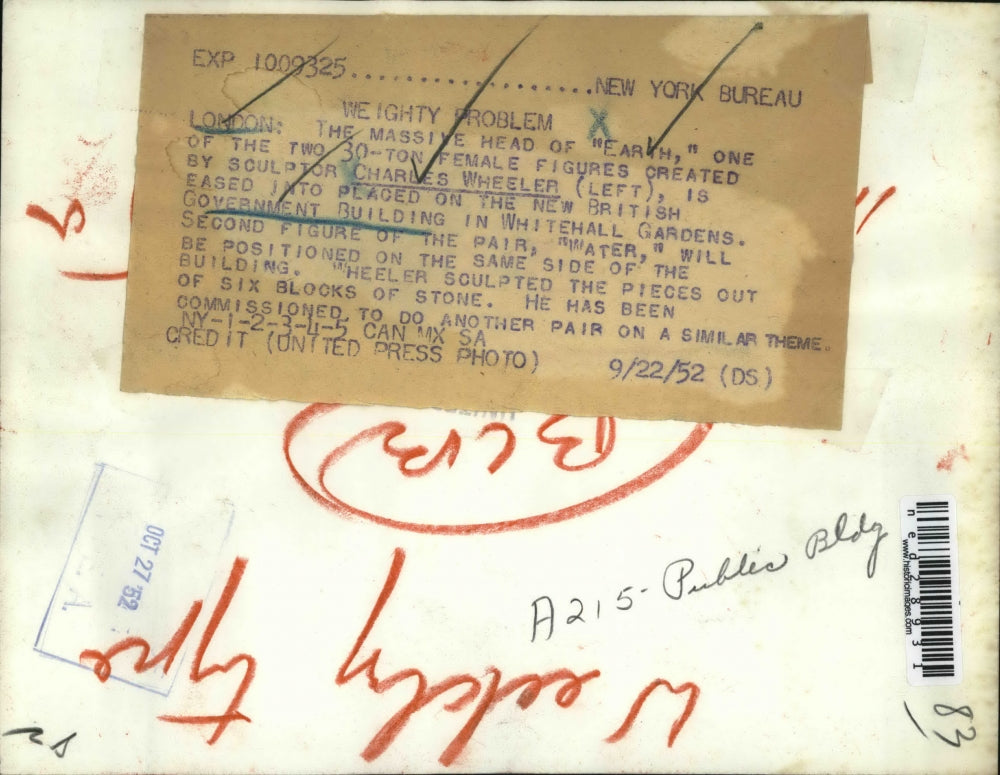 EXP 1009325....................NEW YORK BUREAU
WEIGHTY PROBLEM X
LONDON: THE MASSIVE HEAD OF "EARTH," ONE
OF THE TWO 30-TON FEMALE FIGURES CREATED
BY SCULPTOR CHARLES WHEELER (LEFT), IS
EASED INTO PLACED ON THE NEW BRITISH
GOVERNMENT BUILDING IN WHITEHALL GARDENS.
SECOND FIGURE OF THE PAIR, "WATER," WILL
BE POSITIONED ON THE SAME SIDE OF THE
BUILDING. WHEELER SCULPTED THE PIECES OUT
OF SIX BLOCKS OF STONE. HE HAS BEEN
COMMISSIONED TO DO ANOTHER PAIR ON A SIMILAR THEME.
NY-1-2-3-4-5 CAN MX SA
CREDIT (UNITED PRESS PHOTO) 9/22/52 (DS)
OCT 27 '52
A215-Public Bldg
Weekly
type
ned28931
www.historicimages.com
83